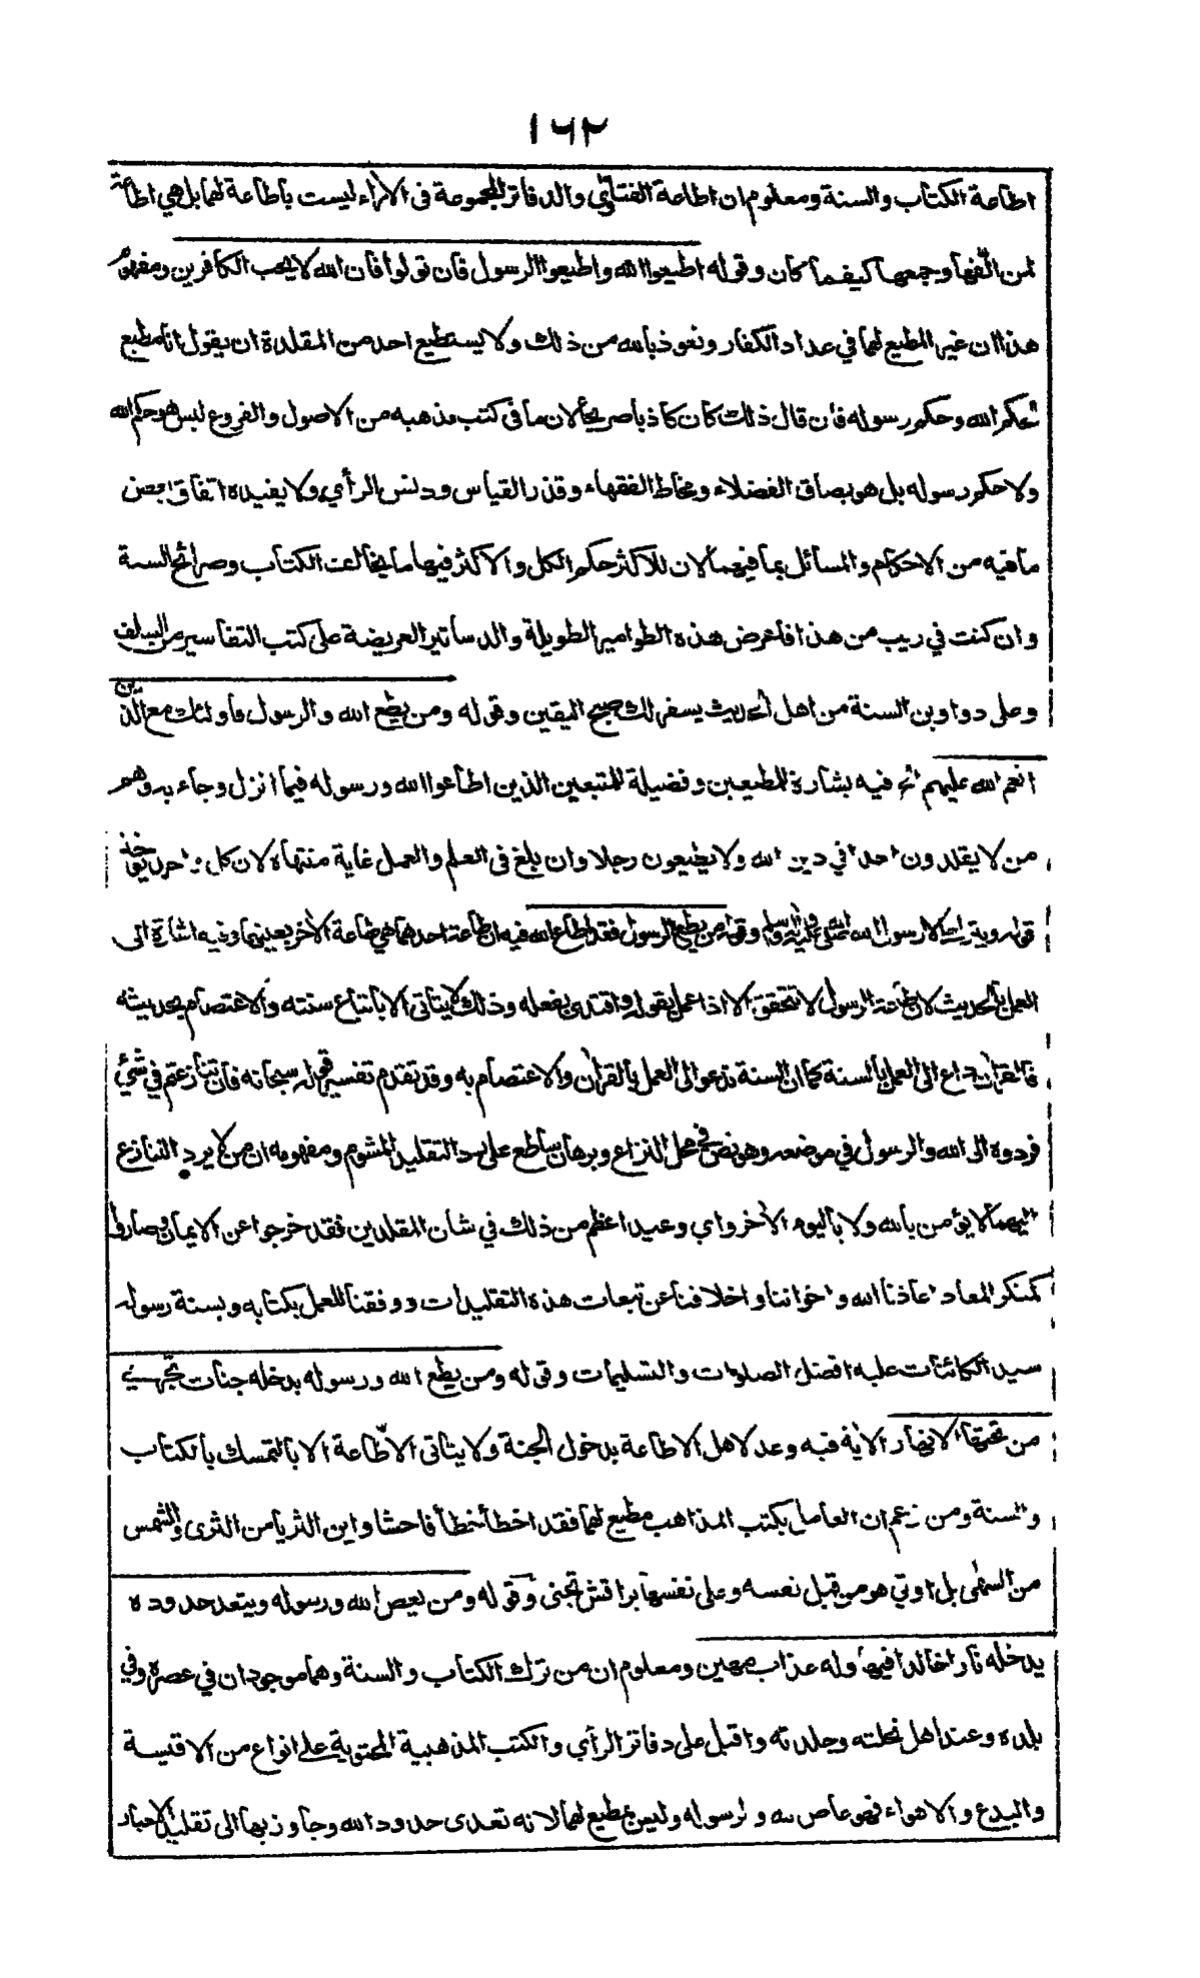 ١٦٢
اطاعة الكتاب والسنة ومعلوم ان اطاعة الفتاوي والدفاتر المجموعة فى الأراء ليست باطاعة لهما بل هي اطاعة
لمن الّفها وجمعها كيفما كان وقوله اطيعوا الله واطيعوا الرسول فان تولوا فان الله لا يحب الكافرين ومفهوم
هذا ان غير المطيع لهما في عداد الكفار ونعوذ بالله من ذلك ولا يستطيع احد من المقلدة ان يقول انا مطيع
لحكم الله وحكم رسوله فان قال ذلك كان كاذبا صريحا لان ما فى كتب مذهبه من الاصول والفروع ليس هو حكم الله
ولا حكم رسوله بل هو بصاق الفضلاء ومخاط الفقهاء وقذر القياس ودنس الرأي ولا يفيده اتفاق بعض
ما فيه من الاحكام والمسائل بما فيهما لان للاكثر حكم الكل والاكثر فيها ما يخالف الكتاب وصرائح السنة
وان كنت في ريب من هذا فاعرض هذه الطوامير الطويلة والدساتير العريضة على كتب التفاسير من السلف
وعلى دواوين السنة من اهل الحديث يسفر لك صبح اليقين وقوله ومن يطع الله والرسول فاولئك مع الذين
انعم الله عليهم الخ فيه بشارة للمطيعين وفضيلة للمتبعين الذين اطاعوا الله ورسوله فيما انزل وجاء به وهم
من لا يقلدون احدا في دين الله ولا يطيعون رجلا وان بلغ فى العلم والعمل غاية منتهاه لان كل واحد يؤخذ
قوله ويترك الا رسول الله صلى الله عليه وآله وسلم وقوله من يطع الرسول فقد اطاع الله فيه ان طاعة احدهما هي طاعة الأخر بعينها وفيه اشارة الى
العمل بالحديث لان طاعة الرسول لا تتحقق الا اذا عمل بقوله واقتدى بفعله وذلك لا يتأتى الا باتباع سنته والاعتصام بحديثه
فالقرآن داع الى العمل بالسنة كما ان السنة تدعو الى العمل بالقرأن والاعتصام به وقد تقدم تفسير قوله سبحانه فان تنازعتم في شيء
فردوه الى الله والرسول في موضعه وهو نص في محل النزاع وبرهان ساطع على رد التقليد المشوم ومفهومه ان من لا يرد التنازع
اليهما لا يؤمن بالله ولا باليوم الأخر واي وعيد اعظم من ذلك في شان المقلدين فقد خرجوا عن الايمان وصاروا
كمنكر المعاد اعاذنا الله واخواننا واخلافنا عن تبعات هذه التقليدات ووفقنا للعمل بكتابه وبسنة رسوله
سيد الكائنات عليه افضل الصلوات والتسليمات وقوله ومن يطع الله ورسوله يدخله جنات تجري
من تحتها الانهار الأية فيه وعد لاهل الاطاعة بدخول الجنة ولا يتأتى الاطاعة الا بالتمسك بالكتاب
والسنة ومن زعم ان العامل بكتب المذاهب مطيع لهما فقد اخطأ خطأ فاحشا واين الثريا من الثرى والشمس
من السهى بل اوتي هو من قبل نفسه وعلى نفسها براقش تجنى وقوله ومن يعص الله ورسوله ويتعد حدوده
يدخله نارا خالدا فيها وله عذاب مهين ومعلوم ان من ترك الكتاب والسنة وهما موجودان في عصره وفي
بلده وعند اهل نحلته وجلدته واقبل على دفاتر الرأي والكتب المذهبية المحتوية على انواع من الاقيسة
والبدع والاهواء فهو عاص لله ولرسوله وليس بمطيع لهما لانه تعدى حدود الله وجاوزبها الى تقليد الاحبار